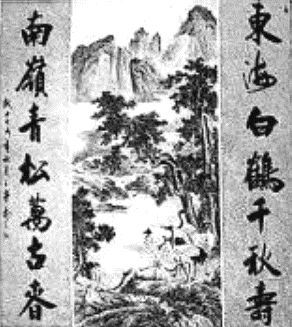 東海白鶴千秋壽
南嶺青松萬古春